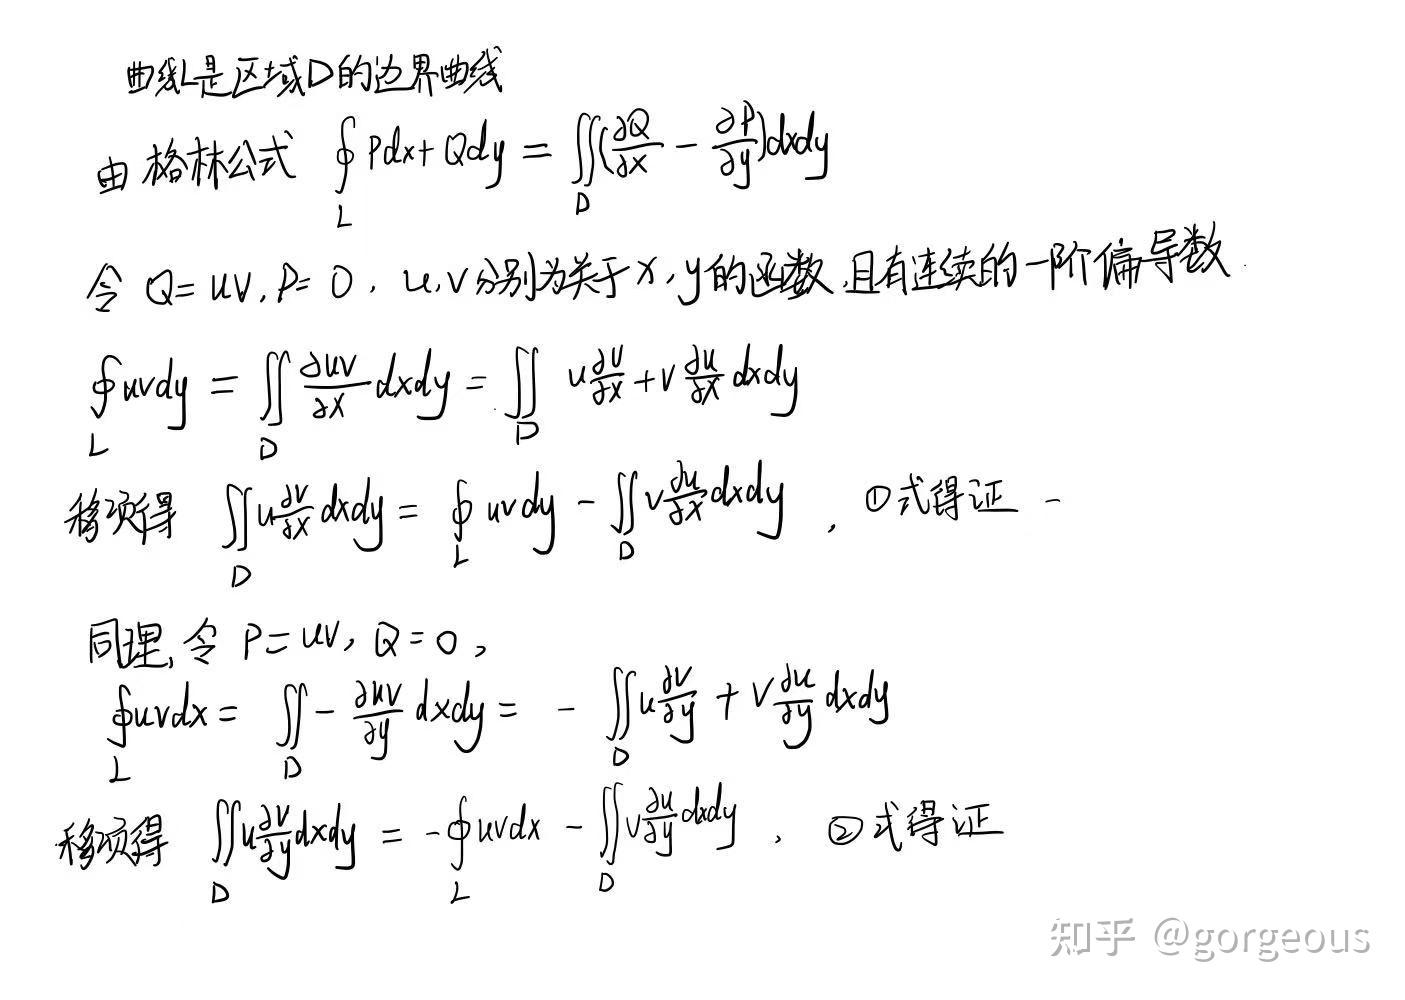 曲线L是区域D的边界曲线
由格林公式 ∮_L Pdx+Qdy = ∬_D(∂Q/∂x − ∂P/∂y)dxdy
令 Q=uv, P=0, u,v分别为关于x,y的函数,且有连续的一阶偏导数.
∮_L uvdy = ∬_D ∂uv/∂x dxdy = ∬_D u ∂v/∂x + v ∂u/∂x dxdy
移项得 ∬_D u ∂v/∂x dxdy = ∮_L uvdy − ∬_D v ∂u/∂x dxdy, ①式得证
同理,令 P=uv, Q=0,
∮_L uvdx = ∬_D − ∂uv/∂y dxdy = − ∬_D u ∂v/∂y + v ∂u/∂y dxdy
移项得 ∬_D u ∂v/∂y dxdy = −∮_L uvdx − ∬_D v ∂u/∂y dxdy, ②式得证
知乎 @gorgeous